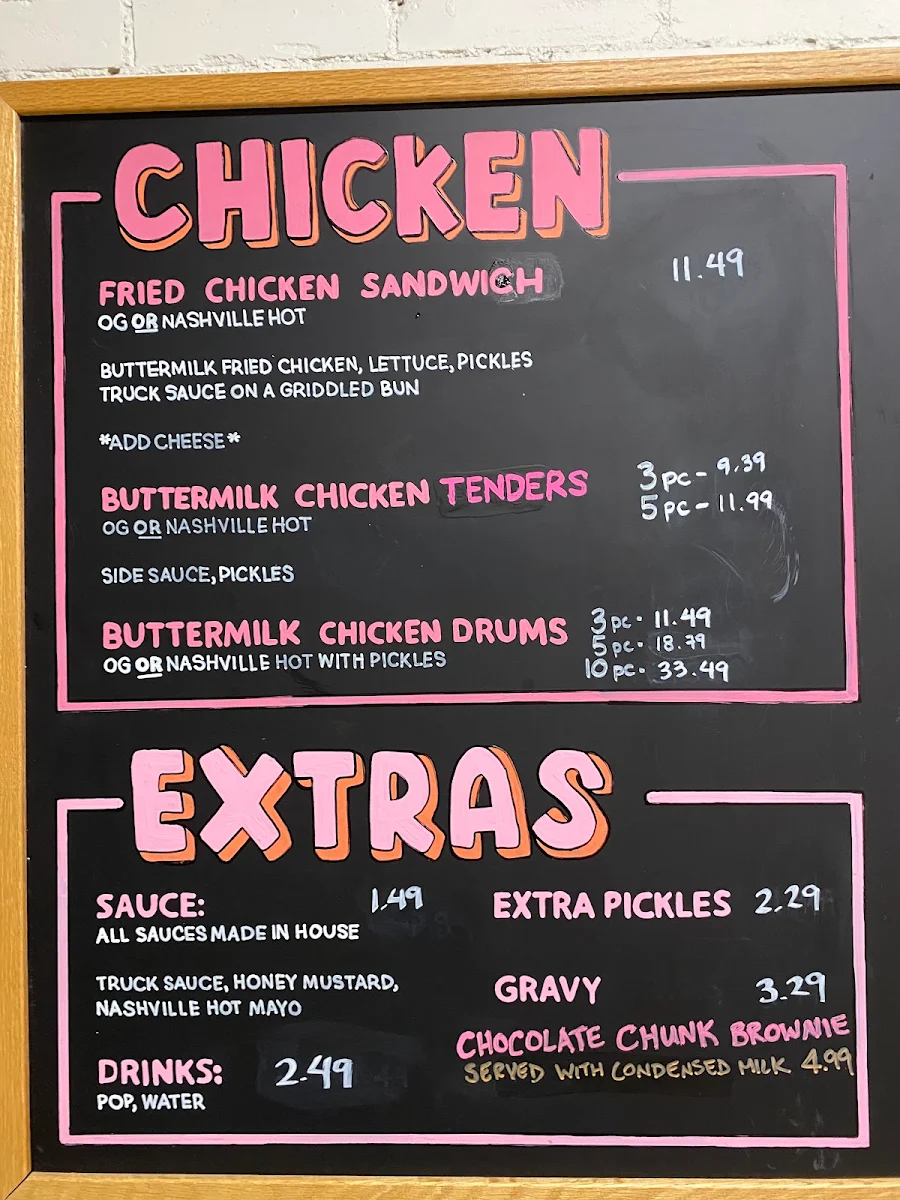 CHICKEN
FRIED CHICKEN SANDWICH 11.49
OG OR NASHVILLE HOT
BUTTERMILK FRIED CHICKEN, LETTUCE, PICKLES
TRUCK SAUCE ON A GRIDDLED BUN
*ADD CHEESE*
BUTTERMILK CHICKEN TENDERS 3pc- 9.39
5pc- 11.99
OG OR NASHVILLE HOT
SIDE SAUCE, PICKLES
BUTTERMILK CHICKEN DRUMS 3pc- 11.49
5pc- 18.79
10pc- 33.49
OG OR NASHVILLE HOT WITH PICKLES
EXTRAS
SAUCE: 1.49
ALL SAUCES MADE IN HOUSE
TRUCK SAUCE, HONEY MUSTARD,
NASHVILLE HOT MAYO
DRINKS: 2.49
POP, WATER
EXTRA PICKLES 2.29
GRAVY 3.29
CHOCOLATE CHUNK BROWNIE
SERVED WITH CONDENSED MILK 4.99